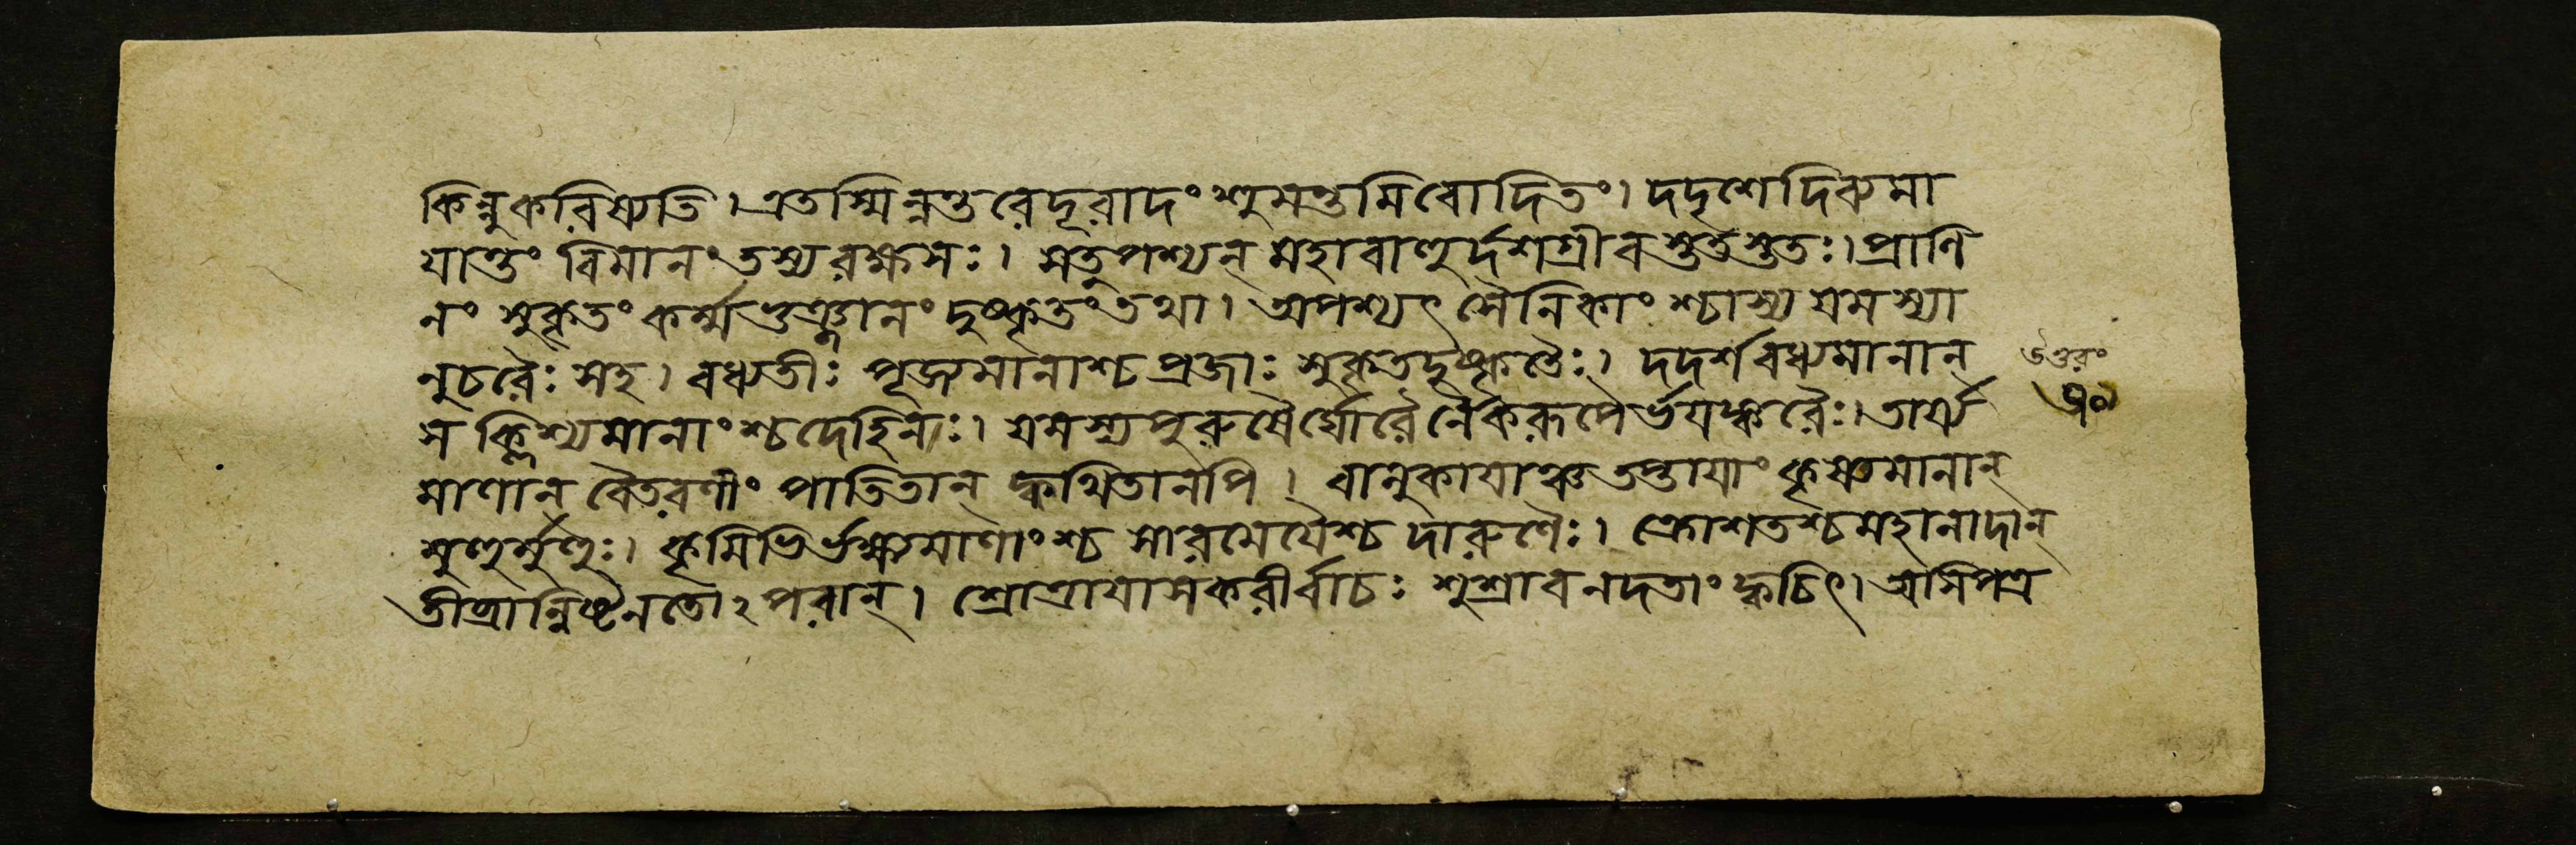 কিন্নুকরিষ্যতি। এতস্মিন্নন্তরেদূরাদংশুমন্তমিবোদিতং। দদৃশেদিব্যমা
যান্তং বিমানংতস্যরক্ষসঃ। সতুপশ্যন্ মহাবাহুর্দশগ্রীবস্ততস্ততঃ। প্রাণি
নং সুকৃতং কর্ম্মভুঞ্জানং দুষ্কৃতংতথা। অপশ্যৎ সৈনিকাংশ্চাস্য যমস্যা
নুচরৈঃ সহ। বধ্যতীঃ পূজ্যমানাশ্চ প্রজাঃ সুকৃতদুষ্কৃতৈঃ। দদর্শবধ্যমানান্
স ক্লিশ্যমানাংশ্চদেহিনঃ। যমস্যপুরুষৈর্ঘোরৈর্নৈকরূপৈর্ভয়ঙ্করৈঃ। তার্য্য
মাণান্ বৈতরণীং পাতিতান্ ক্বথিতানপি। বালুকাযাঞ্চতপ্তাযাং কৃষ্যমানান্
মুহুর্মুহুঃ। কৃমিভির্ভক্ষ্যমাণাংশ্চ সারমেযৈশ্চ দারুণৈঃ। ক্রোশতশ্চমহানাদান্
তীব্রান্নিষ্টনতোঽপরান্। শ্রোত্রাযাসকরীর্বাচঃ শুশ্রাবনদতাং ক্বচিৎ। অসিপত্র
উত্তরং